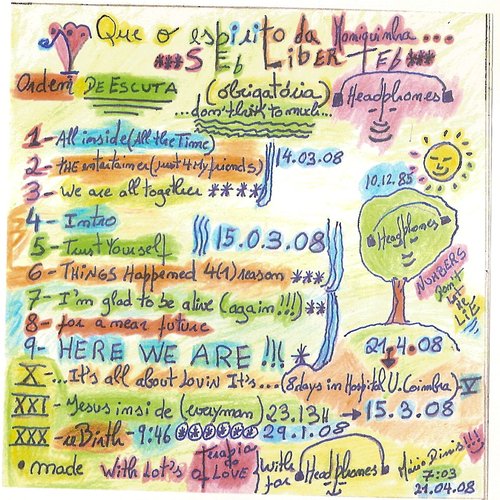 Que o espirito da Momiquinha...
***S Eb LIBERTEb***
Ordem DE ESCUTA (obrigatória) HeadPhones
...don't think to much...
1- All inside (All the Time)
2- THE entertaimer (just 4 My friends) 14.03.08
3- We are all together ****
10.12.85
4- Intro
5- Trust Yourself 15.03.08
HeadPhones
6- THiNGS Happemed 4(1) reason ***
7- I'm glad to be alive (again!!!) **
NUMBERS Don't LiE
8- for a near future
21.4.08
9- HERE WE ARE!!! *
X-...It's all about Lovin It's...(8 days in Hospital U. Coimbra)-V
XXI- Jesus inside (everyman) 23.13H → 15.3.08
XXX- Birth - 9:46 29.1.08
• made With Lot's of LOVE Terapia do With for HeadPhones Mário Dinis!!!
7:03
21.04.08